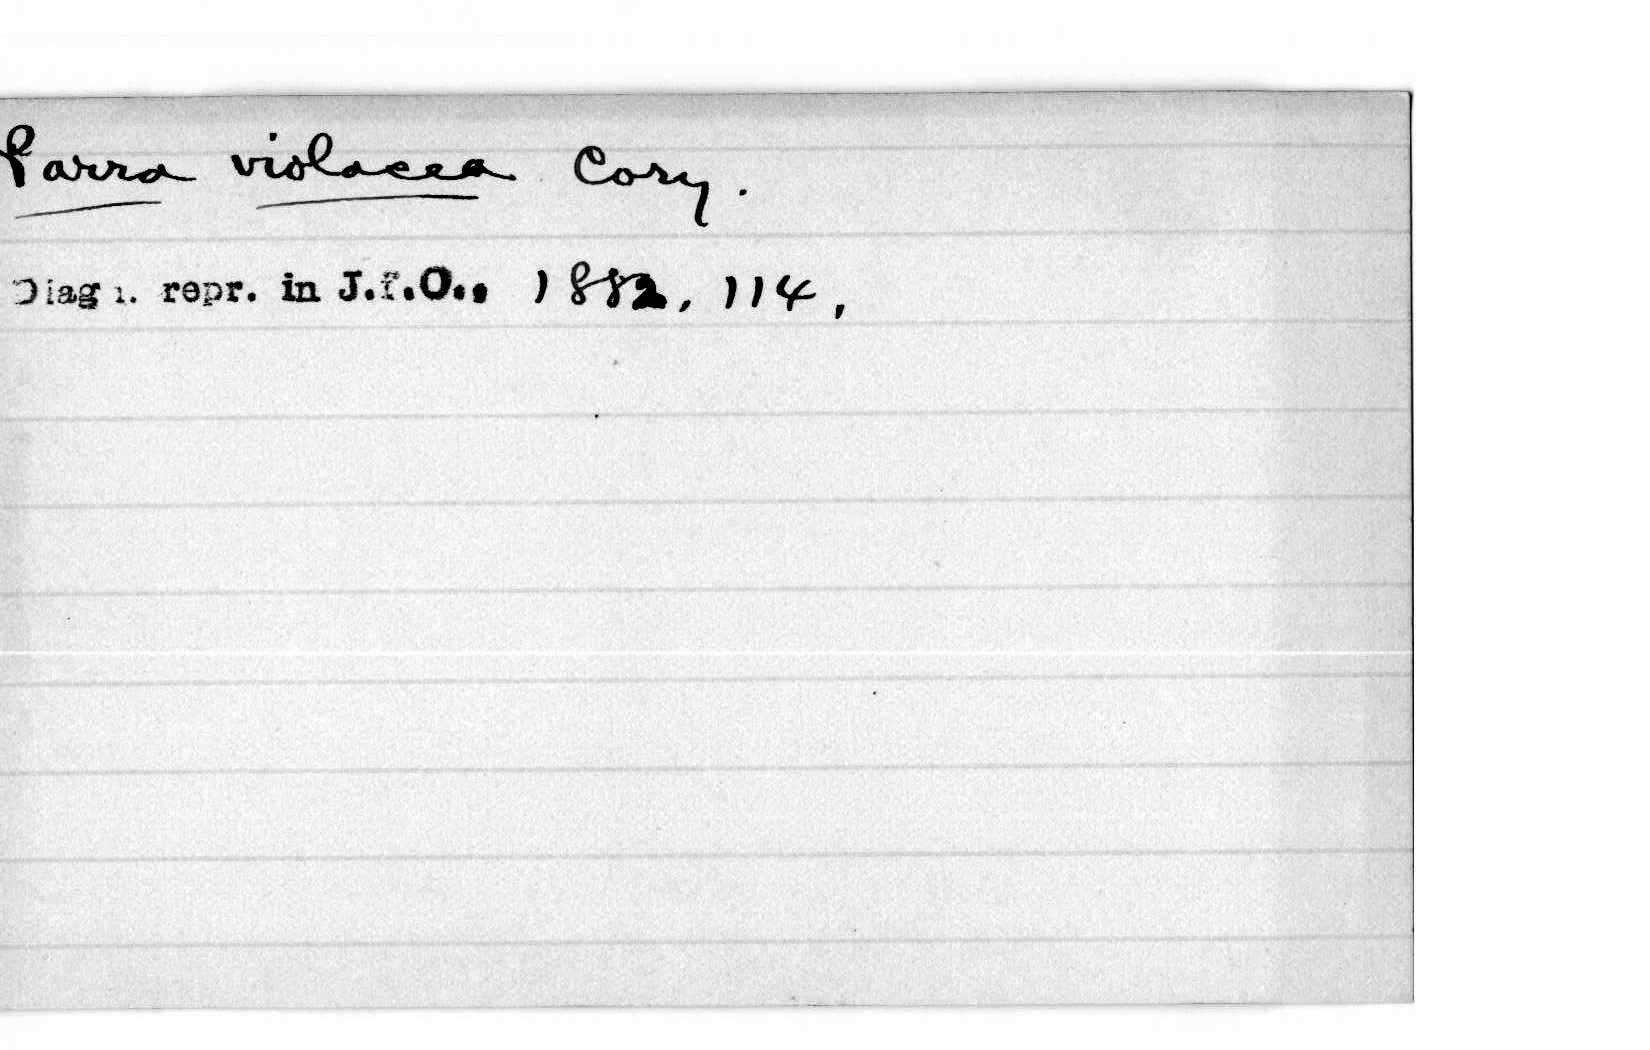 Parra violacea Cory.
Diagn. repr. in J.f.O., 1882, 114,